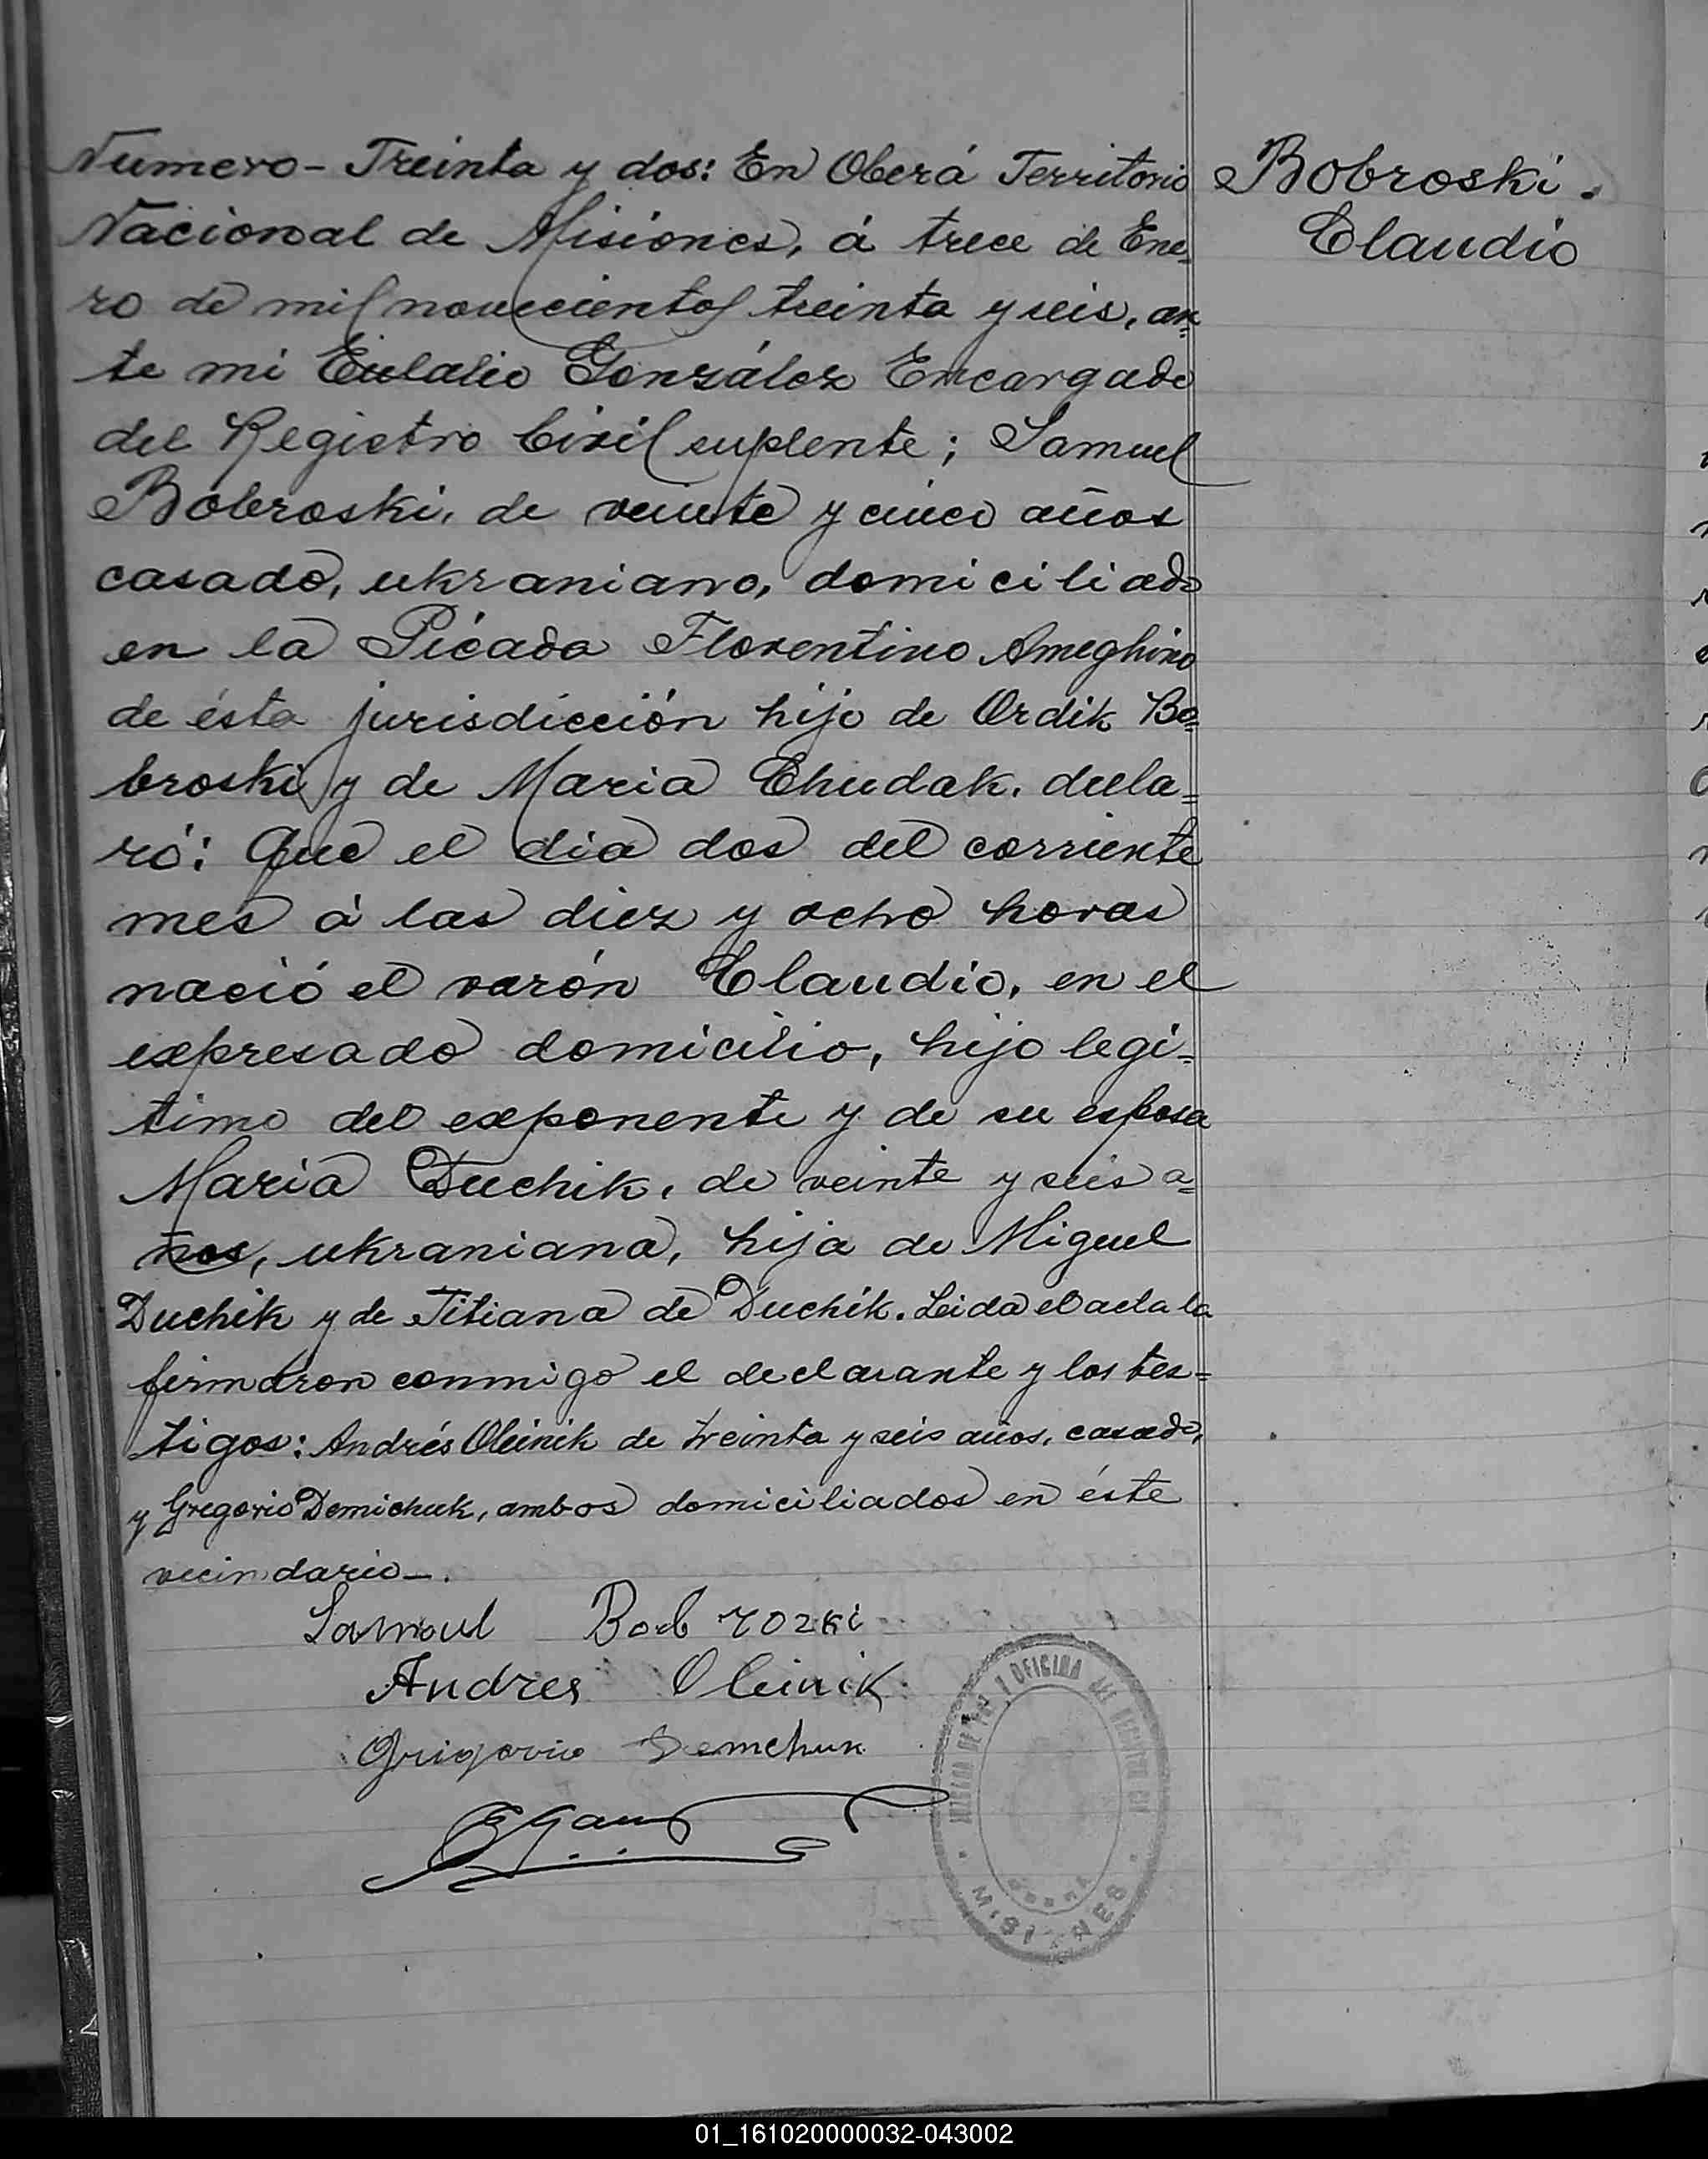 Numero - Treinta y dos: En Oberá Territorio
Nacional de Misiones, á trece de Ene-
ro de mil novecientos treinta y seis, an-
te mi Eulalio González Encargado
del Registro Civil suplente; Samuel
Bobroski, de veinte y cinco años
casado, ukraniano, domiciliado
en la Picada Florentino Ameghino
de ésta jurisdicción hijo de Ordik Bo=
broski y de Maria Chudak, decla=
ró: Que el dia dos del corriente
mes á las diez y ocho horas
nació el varón Claudio, en el
expresado domicilio, hijo legi=
timo del exponente y de su esposa
Maria Duchik, de veinte y seis a=
ños, ukraniana, hija de Miguel
Duchik y de Titiana de Duchik. Leida el acta la
firmaron conmigo el declarante y los tes=
tigos: Andrés Oleinik de treinta y seis años, casado,
y Gregorio Demichuk, ambos domiciliados en éste
vecindario-.
Bobroski.
Claudio
Samoul Bobrozki
Andres Oleinik
Grigorio Demchuk
OFICINA DEL REGISTRO
MISIONES
01_161020000032-043002